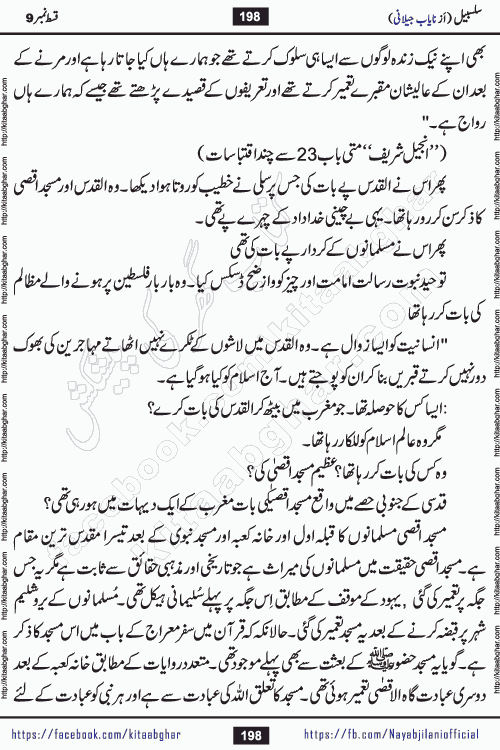 سلسبیل (از نایاب جیلانی)
198
قسط نمبر 9
بھی اپنے نیک زندہ لوگوں سے ایسا ہی سلوک کرتے تھے جو ہمارے ہاں کیا جاتا رہا ہے اور مرنے کے
بعد ان کے عالیشان مقبرے تعمیر کرتے تھے اور تعریفوں کے قصیدے پڑھتے تھے جیسے کہ ہمارے ہاں
رواج ہے۔"
(’’انجیل شریف‘‘ متی باب 23 سے چند اقتباسات)
پھر اس نے القدس پے بات کی جس پر سلی نے خطیب کو روتا ہوا دیکھا۔ وہ القدس اور مسجد اقصی
کا ذکر سن کر رو رہا تھا۔ یہی بے چینی خداداد کے چہرے پے تھی۔
پھر اس نے مسلمانوں کے کردار پے بات کی تھی
توحید نبوت رسالت امامت اور چیز کو واز ضح ڈسکس کیا۔ وہ بار بار فلسطین پر ہونے والے مظالم
کی بات کر رہا تھا
"انسانیت کو ایسا زوال ہے۔ وہ القدس میں لاشوں کے ٹکرے نہیں اٹھاتے مہاجرین کی بھوک
دور نہیں کرتے قبریں بنا کر ان کو پوجتے ہیں۔ آج اسلام کو کیا ہو گیا ہے۔
:ایسا کس کا حوصلہ تھا۔ جو مغرب میں بیٹھ کر القدس کی بات کرے؟
مگر وہ عالم اسلام کو للکار رہا تھا۔
وہ کس کی بات کر رہا تھا؟ عظیم مسجد اقصی کی؟
قدسی کے جنوبی حصے میں واقع مسجد اقصیٰ کی بات مغرب کے ایک دیہات میں ہو رہی تھی؟
مسجد اقصی مسلمانوں کا قبلہ اول اور خانہ کعبہ اور مسجد نبوی کے بعد تیسرا مقدس ترین مقام
ہے۔ مسجد اقصی حقیقت میں مسلمانوں کی میراث ہے جو تاریخی اور مذہبی حقائق سے ثابت ہے مگر یہ جس
جگہ پر تعمیر کی گئی , یہود کے موقف کے مطابق اِس جگہ پر پہلے سُلیمانی ہیکل تھی۔ مُسلمانوں کے یروشلیم
شہر پر قبضہ کرنے کے بعد یہ مسجد تعمیر کی گئی۔ حالانکہ کہ قرآن میں سفر معراج کے باب میں اس مسجد کا ذکر
ہے۔ گویا یہ مسجد حضور ﷺ کے بعثت سے بھی پہلے موجود تھی۔ متعدد روایات کے مطابق خانہ کعبہ کے بعد
دوسری عبادت گاہ الاقصی تعمیر ہوئی تھی۔ مسجد کا تعلق اللہ کی عبادت سے ہے اور ہر نبی کو عبادت کے لئے
https://facebook.com/kitaabghar
198
https://fb.com/Nayabjilaniofficial
http://kitaabghar.com